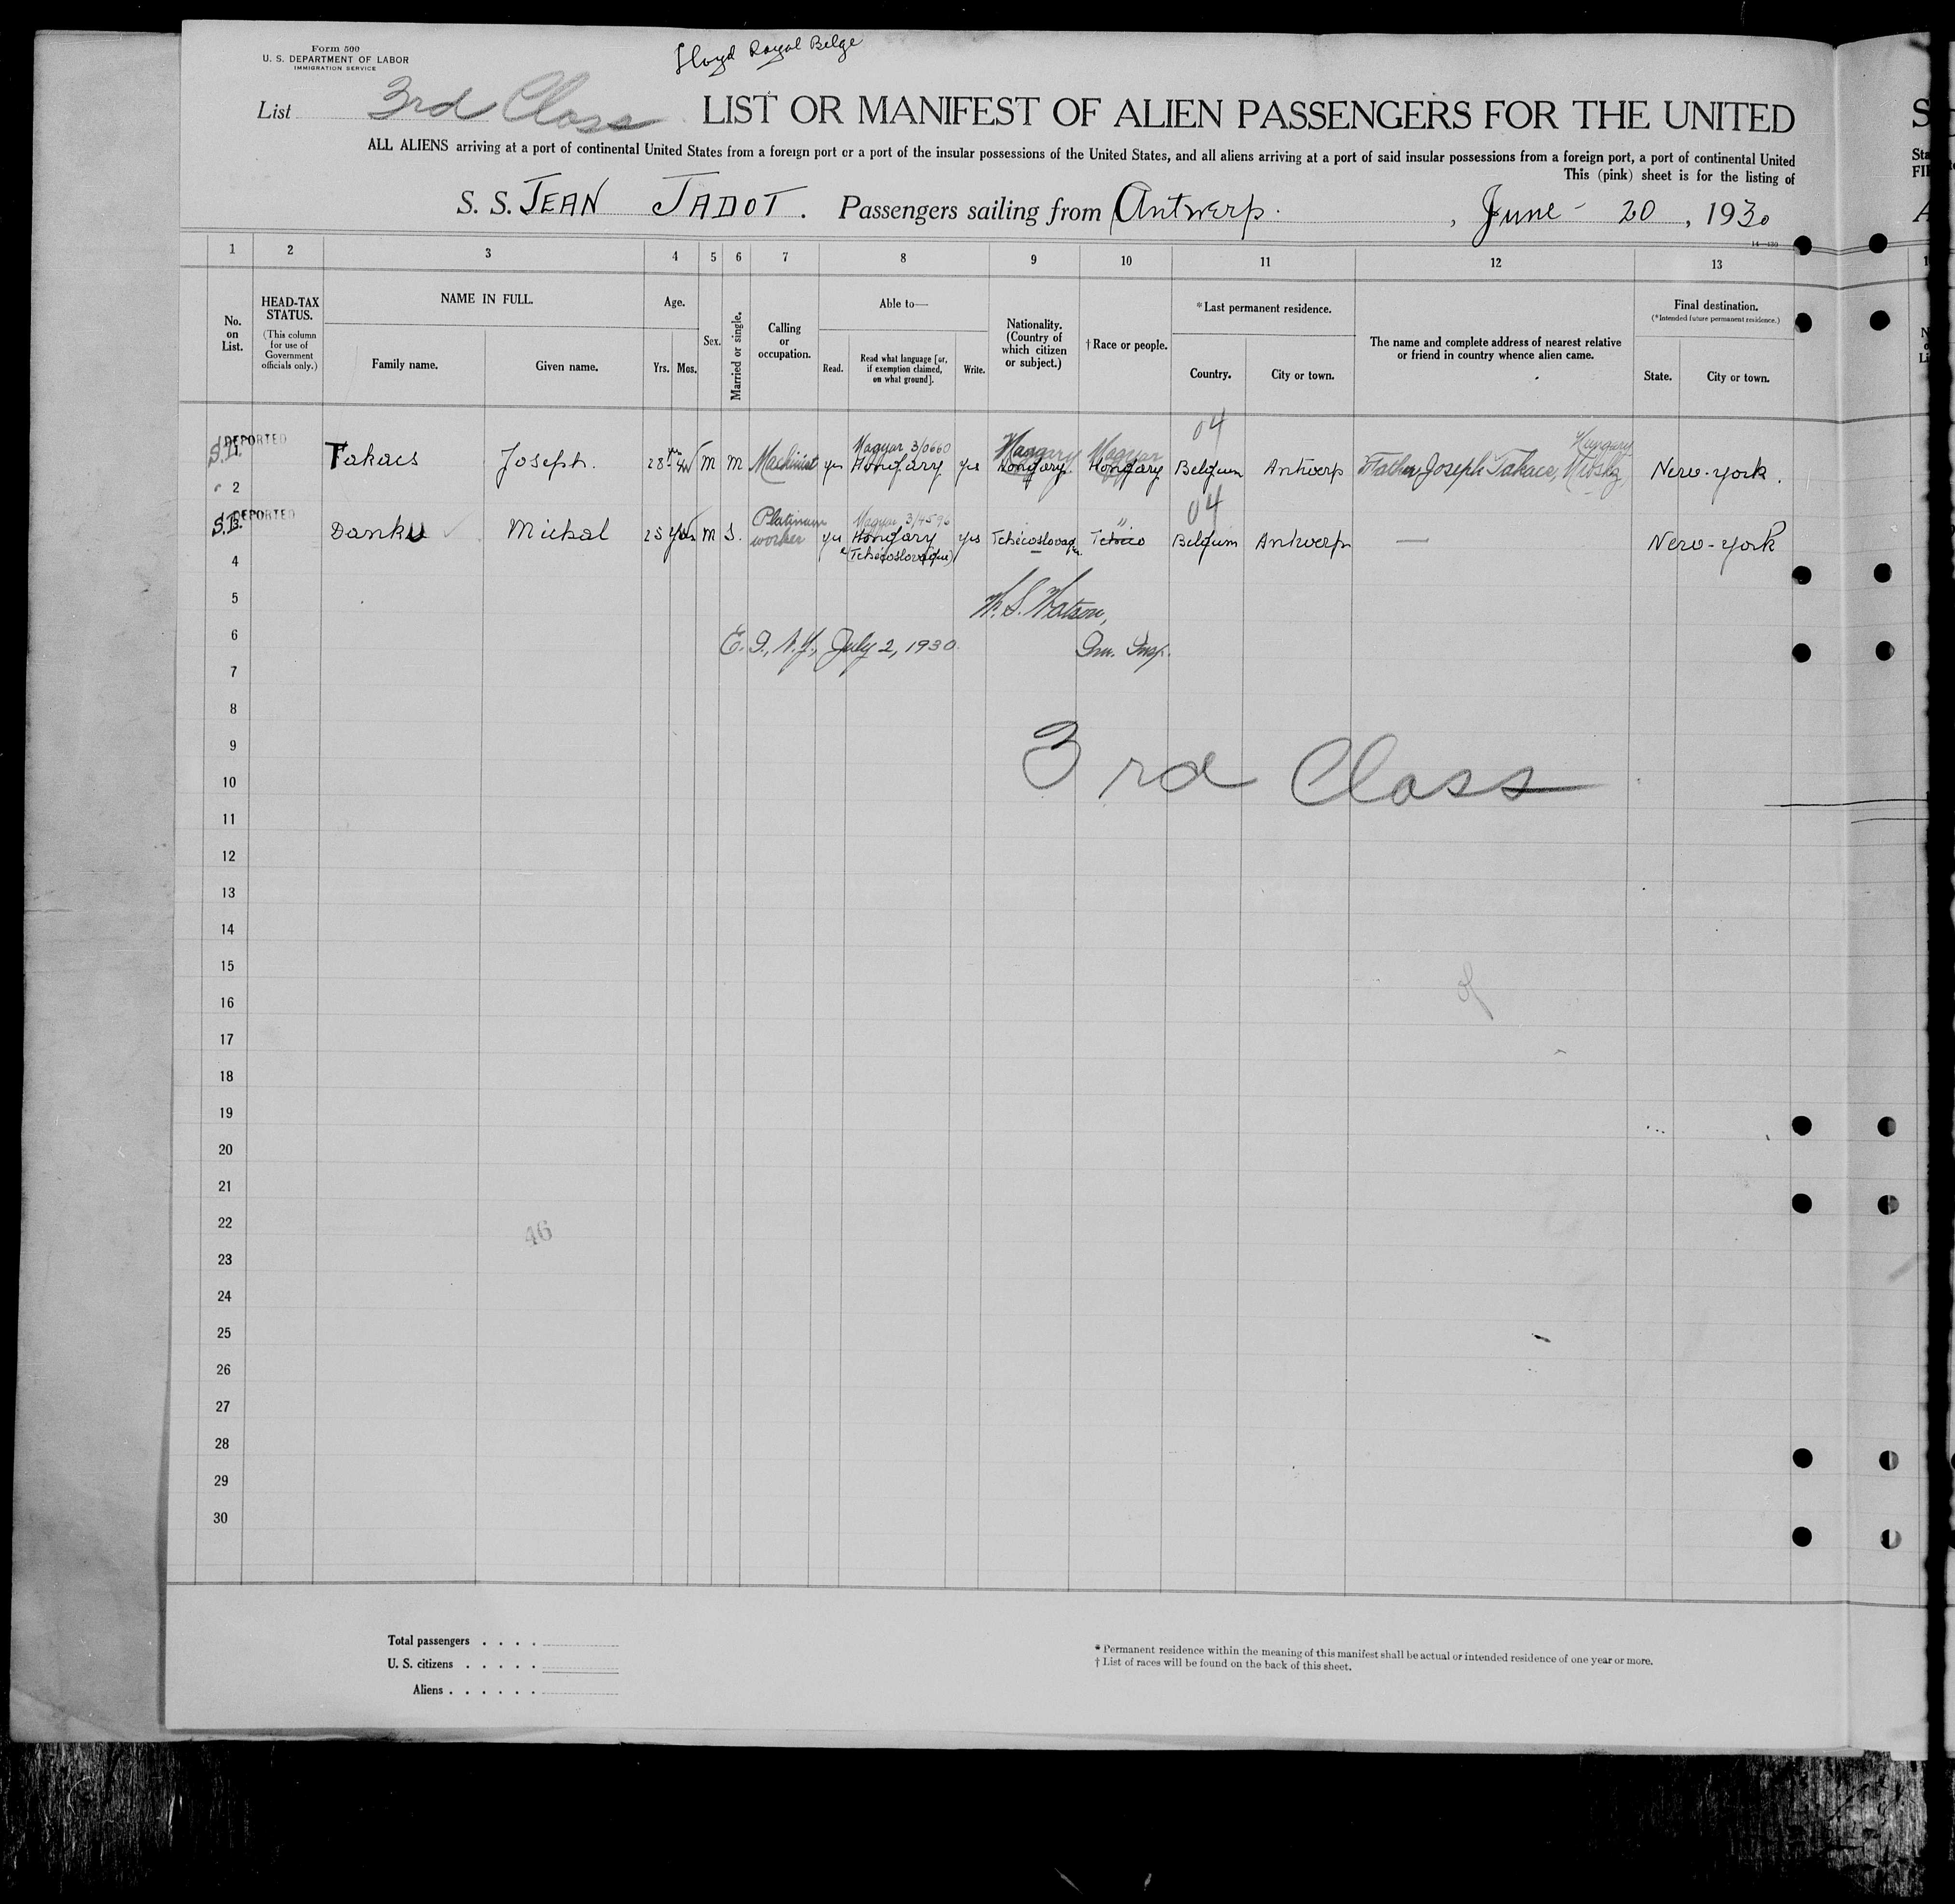 Form 500
U. S. DEPARTMENT OF LABOR
IMMIGRATION SERVICE
Lloyd Royal Belge
List 3rd Class LIST OR MANIFEST OF ALIEN PASSENGERS FOR THE UNITED
ALL ALIENS arriving at a port of continental United States from a foreign port or a port of the insular possessions of the United States, and all aliens arriving at a port of said insular possessions from a foreign port, a port of continental United
This (pink) sheet is for the listing of
S. S. JEAN JADOT. Passengers sailing from Antwerp. , June - 20 , 1930
14—430
1 2 3 4 5 6 7 8 9 10 11 12 13
No. on List.
HEAD-TAX STATUS.
(This column for use of Government officials only.)
NAME IN FULL.
Family name. Given name.
Age.
Yrs. Mos.
Sex.
Married or single.
Calling or occupation.
Able to—
Read. Read what language [or, if exemption claimed, on what ground]. Write.
Nationality. (Country of which citizen or subject.)
† Race or people.
*Last permanent residence.
Country. City or town.
The name and complete address of nearest relative or friend in country whence alien came.
Final destination.
(*Intended future permanent residence.)
State. City or town.
04
DEPORTED
Magyar 3/0660
Hungary
S.I. 1 Takacs Joseph. 28 M M Machinist yes Hongary yes Hongary Magyar Hongary Belgium Antwerp Father Joseph Takacs, New-York.
2
04
DEPORTED
Platinum worker
Magyar 3/4596
S.I. 3 Danku Michal 25 M S. yes Hongary (Tchécoslovaquie) yes Tchécoslovaq. " Tchéco Belgium Antwerp — New-York
4
5
W. S. Watson,
6
E. I., N.Y., July 2, 1930. Imm. Insp.
7
8
9
3rd Class
10
11
12
13
14
15
16
17
18
19
20
21
22
46
23
24
25
26
27
28
29
30
Total passengers . . . .
U. S. citizens . . . . .
Aliens . . . . . .
* Permanent residence within the meaning of this manifest shall be actual or intended residence of one year or more.
† List of races will be found on the back of this sheet.